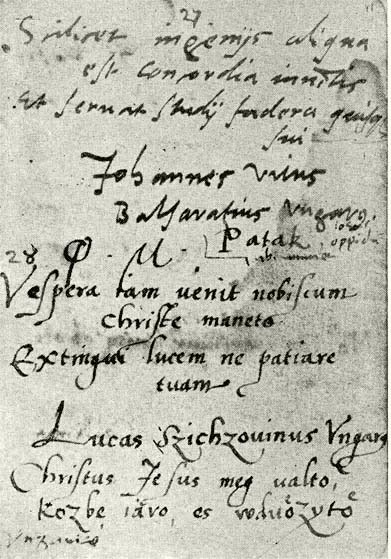 27
Scilicet ingenijs aliqua
est concordia iunctis
Et seruat studij foedera quisq
sui
Johannes Vitus
Balsaratius Vngarg.
Patak oppidū
28 D. M.
Vespera iam uenit nobiscum
Christe maneto
Extingui lucem ne patiare
tuam
Lucas Szichzouinus Vngarg
Christus Jesus meg ualto,
Közbe iaro, es vduözytö
Vngarico